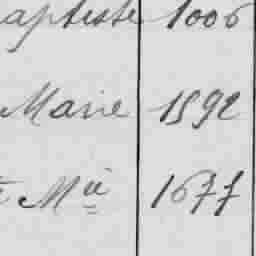 aptiste 1006
Marie 1592
t Mie 1677